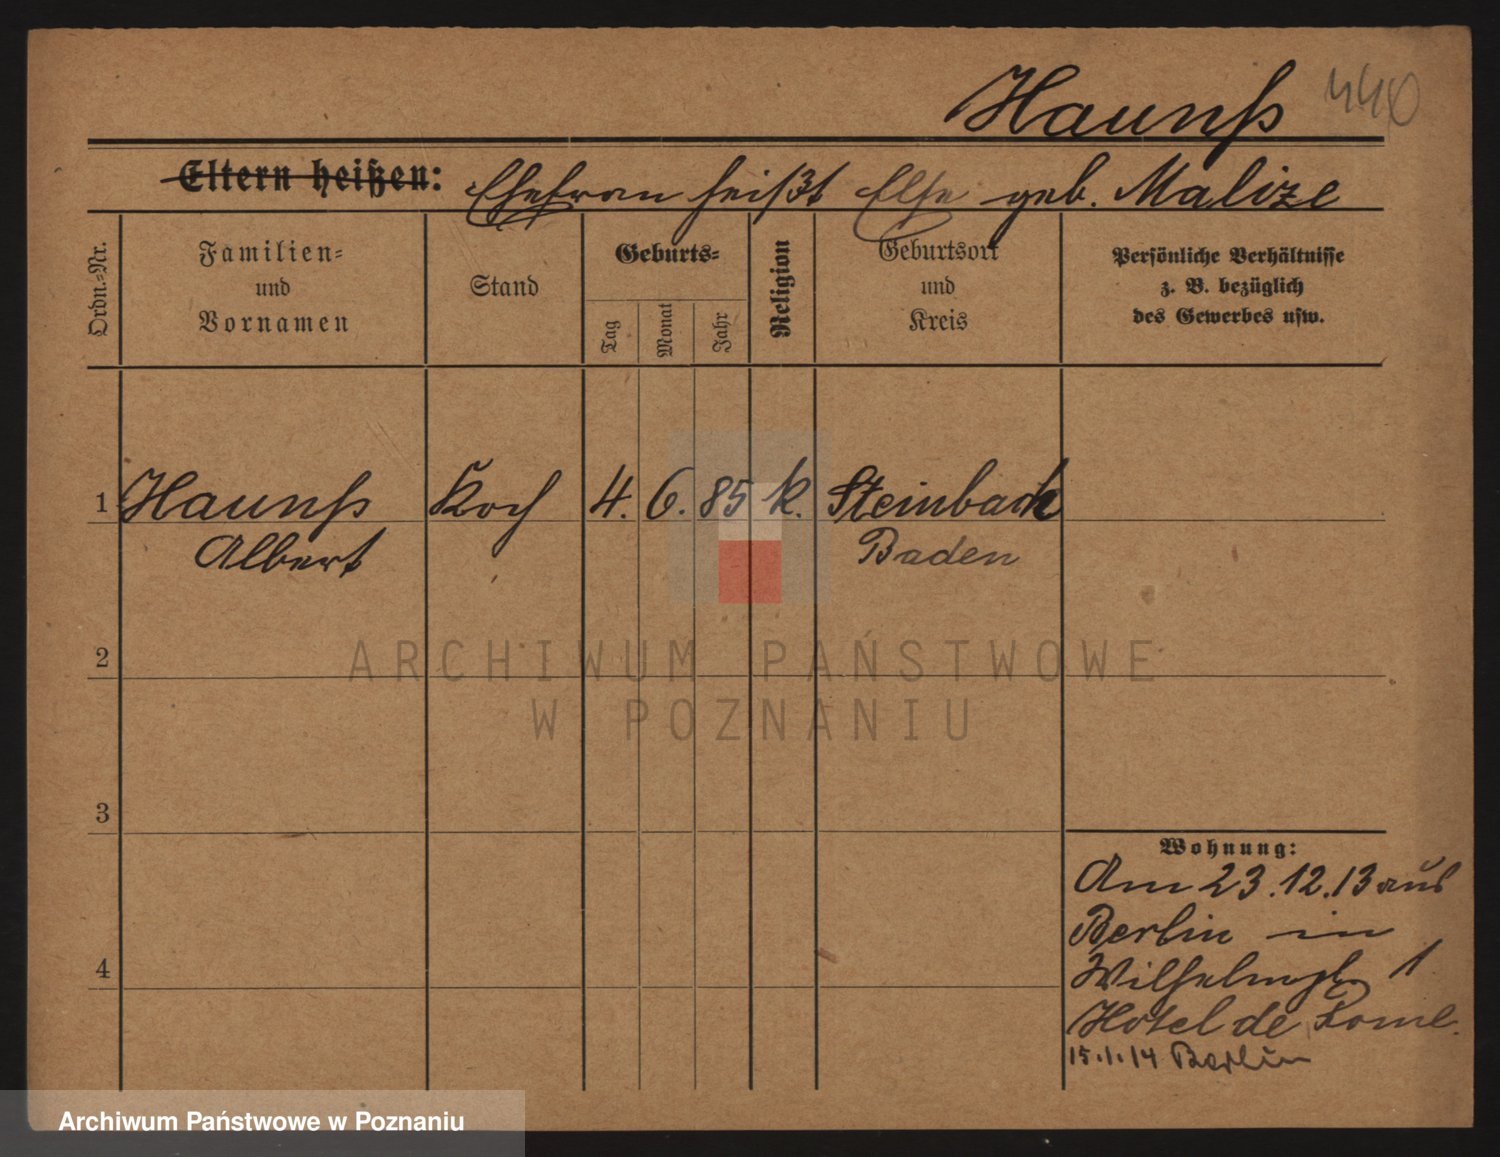 Haunß 440
Eltern heißen: Ehefrau heißt Else geb. Malize
Ordn.-Nr.
Familien-
und
Vornamen
Stand
Geburts-
Tag
Monat
Jahr
Religion
Geburtsort
und
Kreis
Persönliche Verhältnisse
z. B. bezüglich
des Gewerbes usw.
1 Haunß Koch 4. 6. 85 k. Steinbach
Albert Baden
2
3
4
Wohnung:
Am 23.12.13 aus
Berlin in
Wilhelmspl. 1
Hotel de Rome.
15.1.14 Berlin
ARCHIWUM PAŃSTWOWE
W POZNANIU
Archiwum Państwowe w Poznaniu